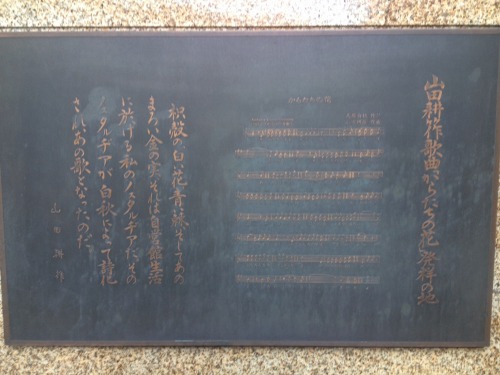 山田耕筰歌曲からたちの花発祥の地
からたちの花
枳殻の白い花、青い棘、そしてあの
まろい金の実、それは自営館生活
に於ける私のノスタルヂアだ。その
ノスタルヂアが白秋によって詩化
され、あの歌となったのだ。
山田耕筰